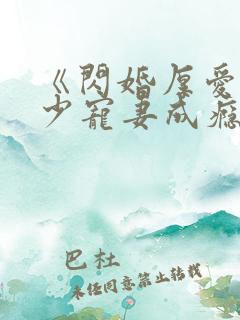 《閃婚厚愛
少寵妻成癮
巴杜
未经同意禁止转载